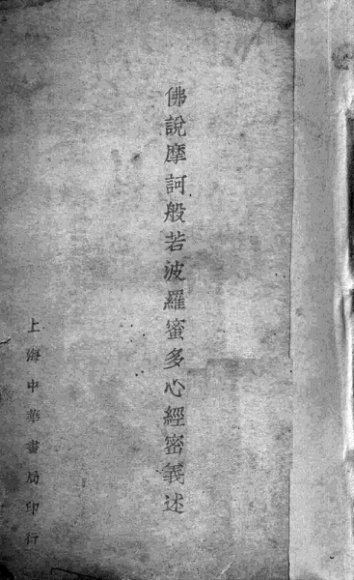 佛說摩訶般若波羅蜜多心經密義述
上海中華書局印行